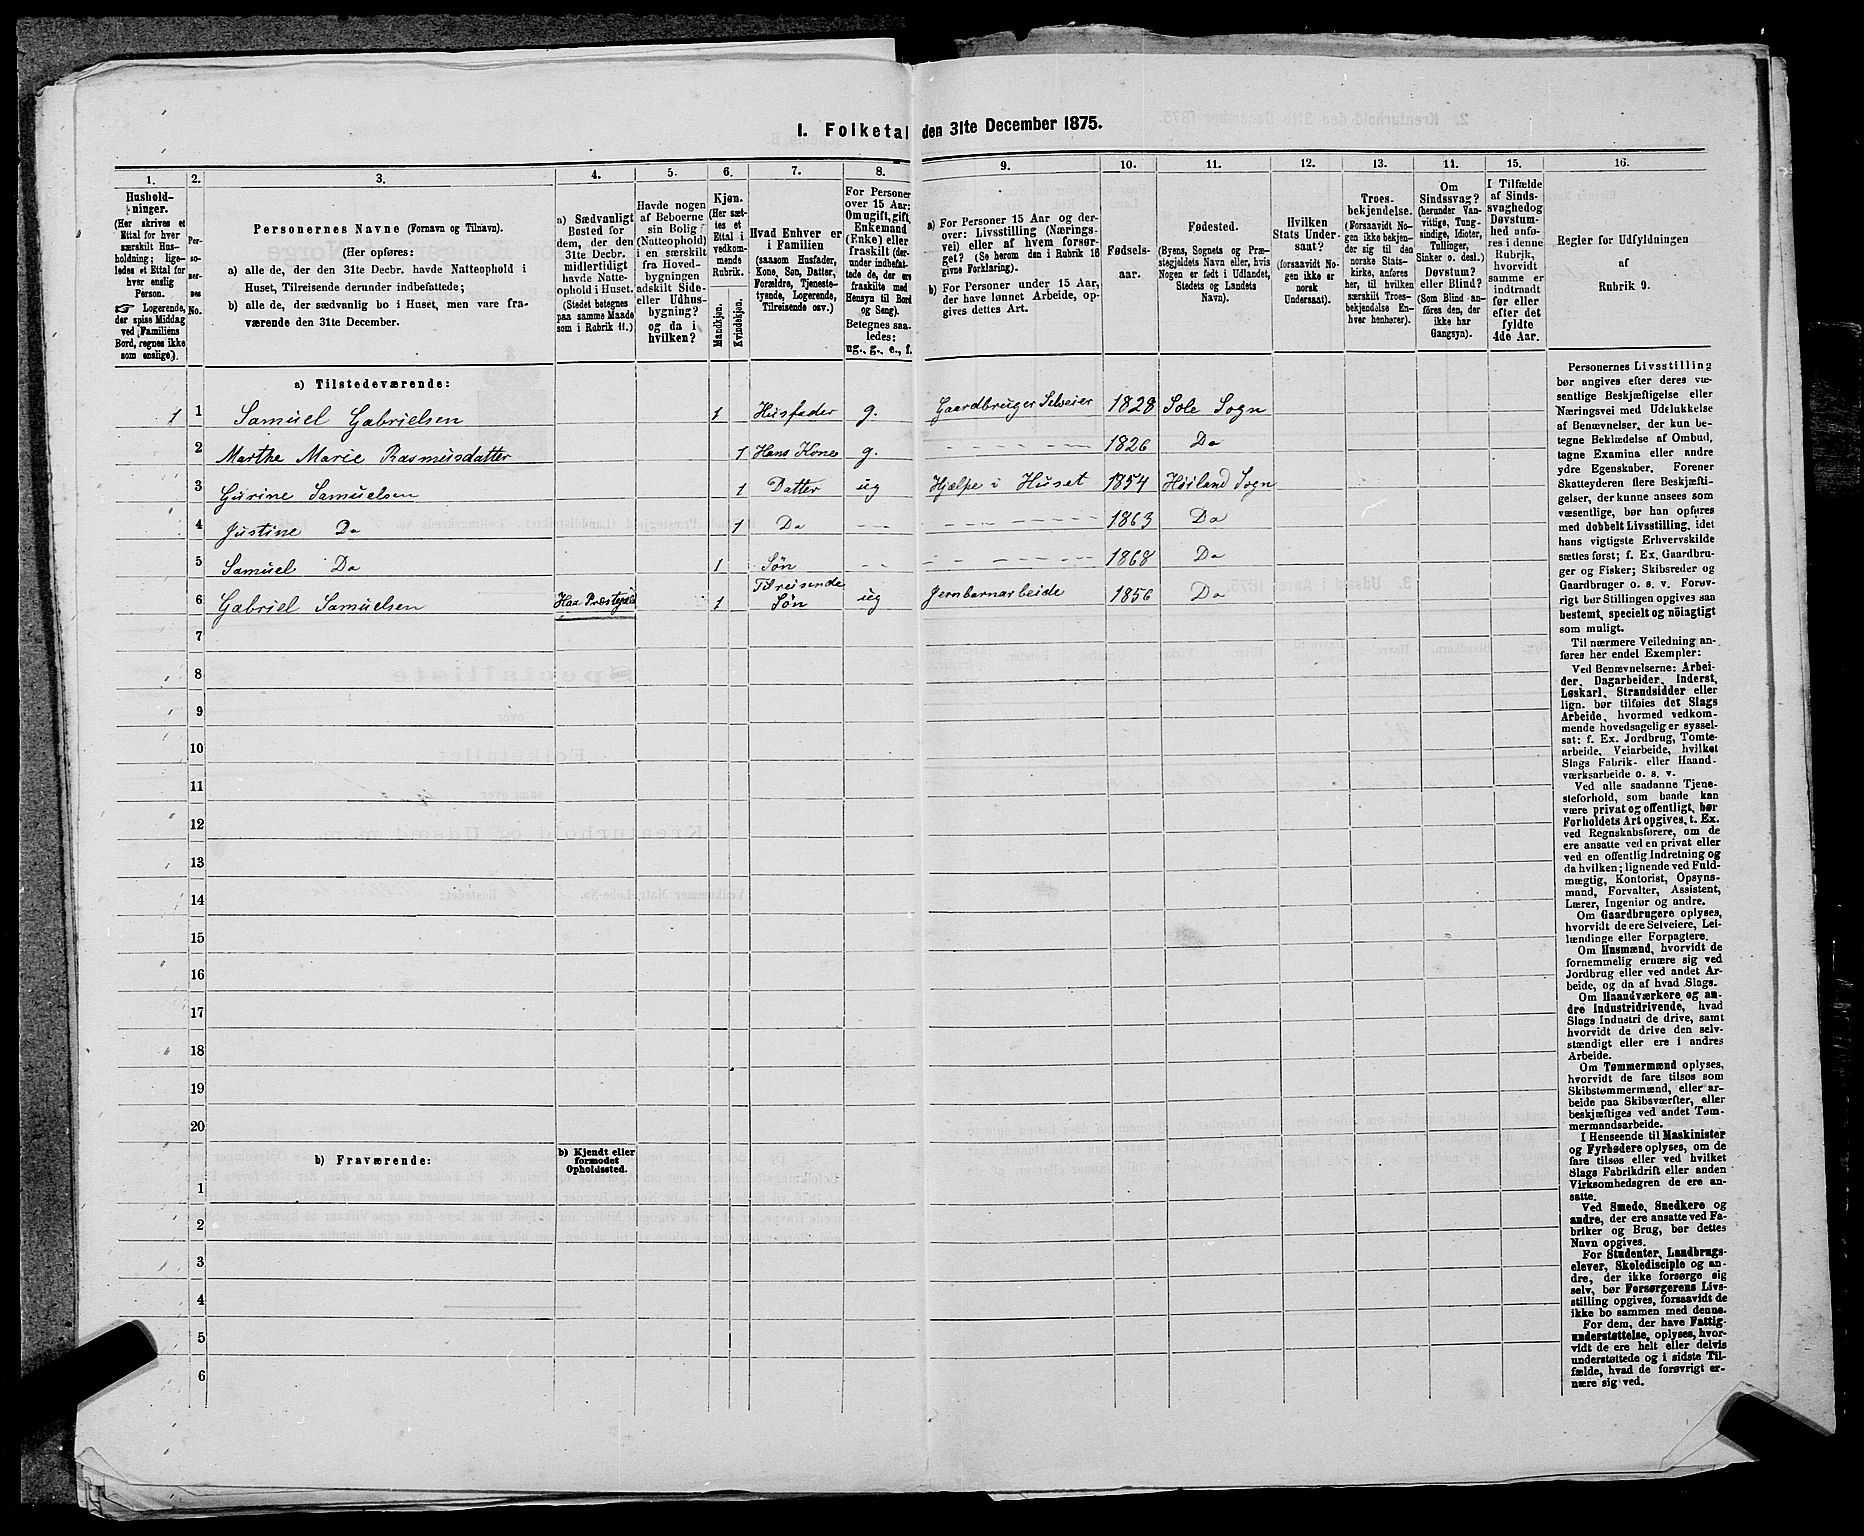 I. Folketal den 31te December 1875.
1. 2. 3. 4. 5. 6. 7. 8. 9. 10. 11. 12. 13. 14. 15. 16.
Hushold-
ninger.
(Her skrives et
Ettal for hver
særskilt Hus-
holdning; lige-
ledes et Ettal for
hver enslig
Person.
☞ Logerende,
der spise Middag
ved Familiens
Bord, regnes ikke
som enslige).
Per-
so-
ner-
nes
No.
Personernes Navne (Fornavn og Tilnavn).
(Her opføres:
a) alle de, der den 31te Decbr. havde Natteophold i
Huset, Tilreisende derunder indbefattede;
b) alle de, der sædvanlig bo i Huset, men vare fra-
værende den 31te December.
a) Sædvanligt
Bosted for
dem, der den
31te Decbr.
midlertidigt
havde Natte-
ophold i Huset.
(Stedet betegnes
paa samme Maade
som i Rubrik 11.)
Havde nogen
af Beboerne
sin Bolig
(Natteophold)
i en særskilt
fra Hoved-
bygningen
adskilt Side-
eller Udhus-
bygning?
og da i
hvilken?
Kjøn.
(Her sæt-
tes et
Ettal i
vedkom-
mende
Rubrik.
Mandkjøn.
Kvindekjøn.
Hvad Enhver er
i Familien
(saasom Husfader,
Kone, Søn, Datter,
Forældre, Tjeneste-
tyende, Logerende,
Tilreisende osv.)
For Personer
over 15 Aar:
Om ugift, gift,
Enkemand
(Enke) eller
fraskilt (der-
under indbefat-
tede de, der ere
fraskilte med
Hensyn til Bord
og Seng).
Betegnes saa-
ledes:
ug., g., e., f.
a) For Personer 15 Aar og der-
over: Livsstilling (Nærings-
vei) eller af hvem forsør-
get? (Se herom den i Rubrik 16
givne Forklaring).
b) For Personer under 15 Aar,
der have lønnet Arbeide, op-
gives dettes Art.
Fødsels-
aar.
Fødested.
(Byens, Sognets og Præ-
stegjeldets Navn eller, hvis
Nogen er født i Udlandet,
Stedets og Landets
Navn).
Hvilken
Stats Under-
saat?
(forsaavidt No-
gen ikke er
norsk
Undersaat).
Troes-
bekjendelse.
(Forsaavidt No-
gen ikke bekjen-
der sig til den
norske Stats-
kirke, anføres
her, til hvilken
særskilt Troes-
bekjendelse En-
hver henhører).
Om
Sindssvag?
(herunder Van-
vittige, Tung-
sindige, Idioter,
Tullinger,
Sinker o. desl.)
Døvstum?
eller Blind?
(Som Blind an-
føres den, der
ikke har
Gangsyn).
I Tilfælde
af Sinds-
svaghed og
Døvstum-
hed anfø-
res i denne
Rubrik,
hvorvidt
samme er
indtraadt
før eller
efter det
fyldte
4de Aar.
Regler for Udfyldningen
af
Rubrik 9.
a) Tilstedeværende:
1 1 Samuel Gabrielsen 1 Husfader g. Gaardbruger Selveier 1828 Sole Sogn
2 Marthe Marie Rasmusdatter 1 Hans Kone g. - - - - - 1826 Do
3 Gurine Samuelsen 1 Datter ug Hjælpe i Huset 1854 Høiland Sogn
4 Justine Do 1 Do - - - - - - - - - 1863 Do
5 Samuel Do 1 Søn - - - - - - - - 1868 Do
6 Gabriel Samuelsen Haa Præstegjeld 1 Tilreisende Søn ug Jernbanarbeide 1856 Do
7
8
9
10
11
12
13
14
15
16
17
18
19
20
b) Fraværende:
b) Kjendt eller
formodet
Opholdssted.
1
2
3
4
5
6
Personernes Livsstilling
bør angives efter deres væ-
sentlige Beskjæftigelse eller
Næringsvei med Udelukkelse
af Benævnelser, der kun be-
tegne Beklædelse af Ombud,
tagne Examina eller andre
ydre Egenskaber. Forener
Skatteyderen flere Beskjæfti-
gelser, der kunne ansees som
væsentlige, bør han opføres
med dobbelt Livsstilling, idet
hans vigtigste Erhvervskilde
sættes først; f. Ex. Gaardbru-
ger og Fisker; Skibsreder og
Gaardbruger o. s. v. Forøv-
rigt bør Stillingen opgives saa
bestemt, specielt og nöiagtigt
som muligt.
Til nærmere Veiledning an-
føres her endel Exempler:
Ved Benævnelserne: Arbei-
der, Dagarbeider, Inderst,
Løskarl, Strandsidder eller
lign. bør tilføies det Slags
Arbeide, hvormed vedkom-
mende hovedsagelig er syssel-
sat; f. Ex. Jordbrug, Tomte-
arbeide, Veiarbeide, hvilket
Slags Fabrik- eller Haand-
værksarbeide o. s. v.
Ved alle saadanne Tjene-
steforhold, som baade kan
være privat og offentligt, bør
Forholdets Art opgives, t. Ex.
ved Regnskabsførere, om de
ere ansatte ved en privat eller
ved en offentlig Indretning og
da hvilken; lignende ved Fuld-
mægtig, Kontorist, Opsyns-
mand, Forvalter, Assistent,
Lærer, Ingeniør og andre.
Om Gaardbrugere oplyses,
hvorvidt de ere Selveiere, Lei-
lændinge eller Forpagtere.
Om Husmænd, hvorvidt de
fornemmelig ernære sig ved
Jordbrug eller ved andet Ar-
beide, og da af hvad Slags.
Om Haandværkere og an-
dre Industridrivende, hvad
Slags Industri de drive, samt
hvorvidt de drive den selv-
stændigt eller ere i andres
Arbeide.
Om Tømmermænd oplyses,
hvorvidt de fare tilsøs som
Skibstømmermænd, eller ar-
beide paa Skibsværfter, eller
beskjæftiges ved andet Tøm-
mermandsarbeide.
I Henseende til Maskinister
og Fyrbødere oplyses, om de
fare tilsøs eller ved hvilket
Slags Fabrikdrift eller anden
Virksomhedsgren de ere an-
satte.
Ved Smede, Snedkere og
andre, der ere ansatte ved Fa-
briker og Brug, bør dettes
Navn opgives.
For Studenter, Landbrugs-
elever, Skoledisciple og an-
dre, der ikke forsørge sig
selv, bør Forsørgerens Livs-
stilling opgives, forsaavidt de
ikke bo sammen med denne.
For dem, der have Fattig-
understøttelse, oplyses, hvor-
vidt de ere helt eller delvis
understøttede og i sidste Til-
fælde, hvad de forøvrigt er-
nære sig ved.